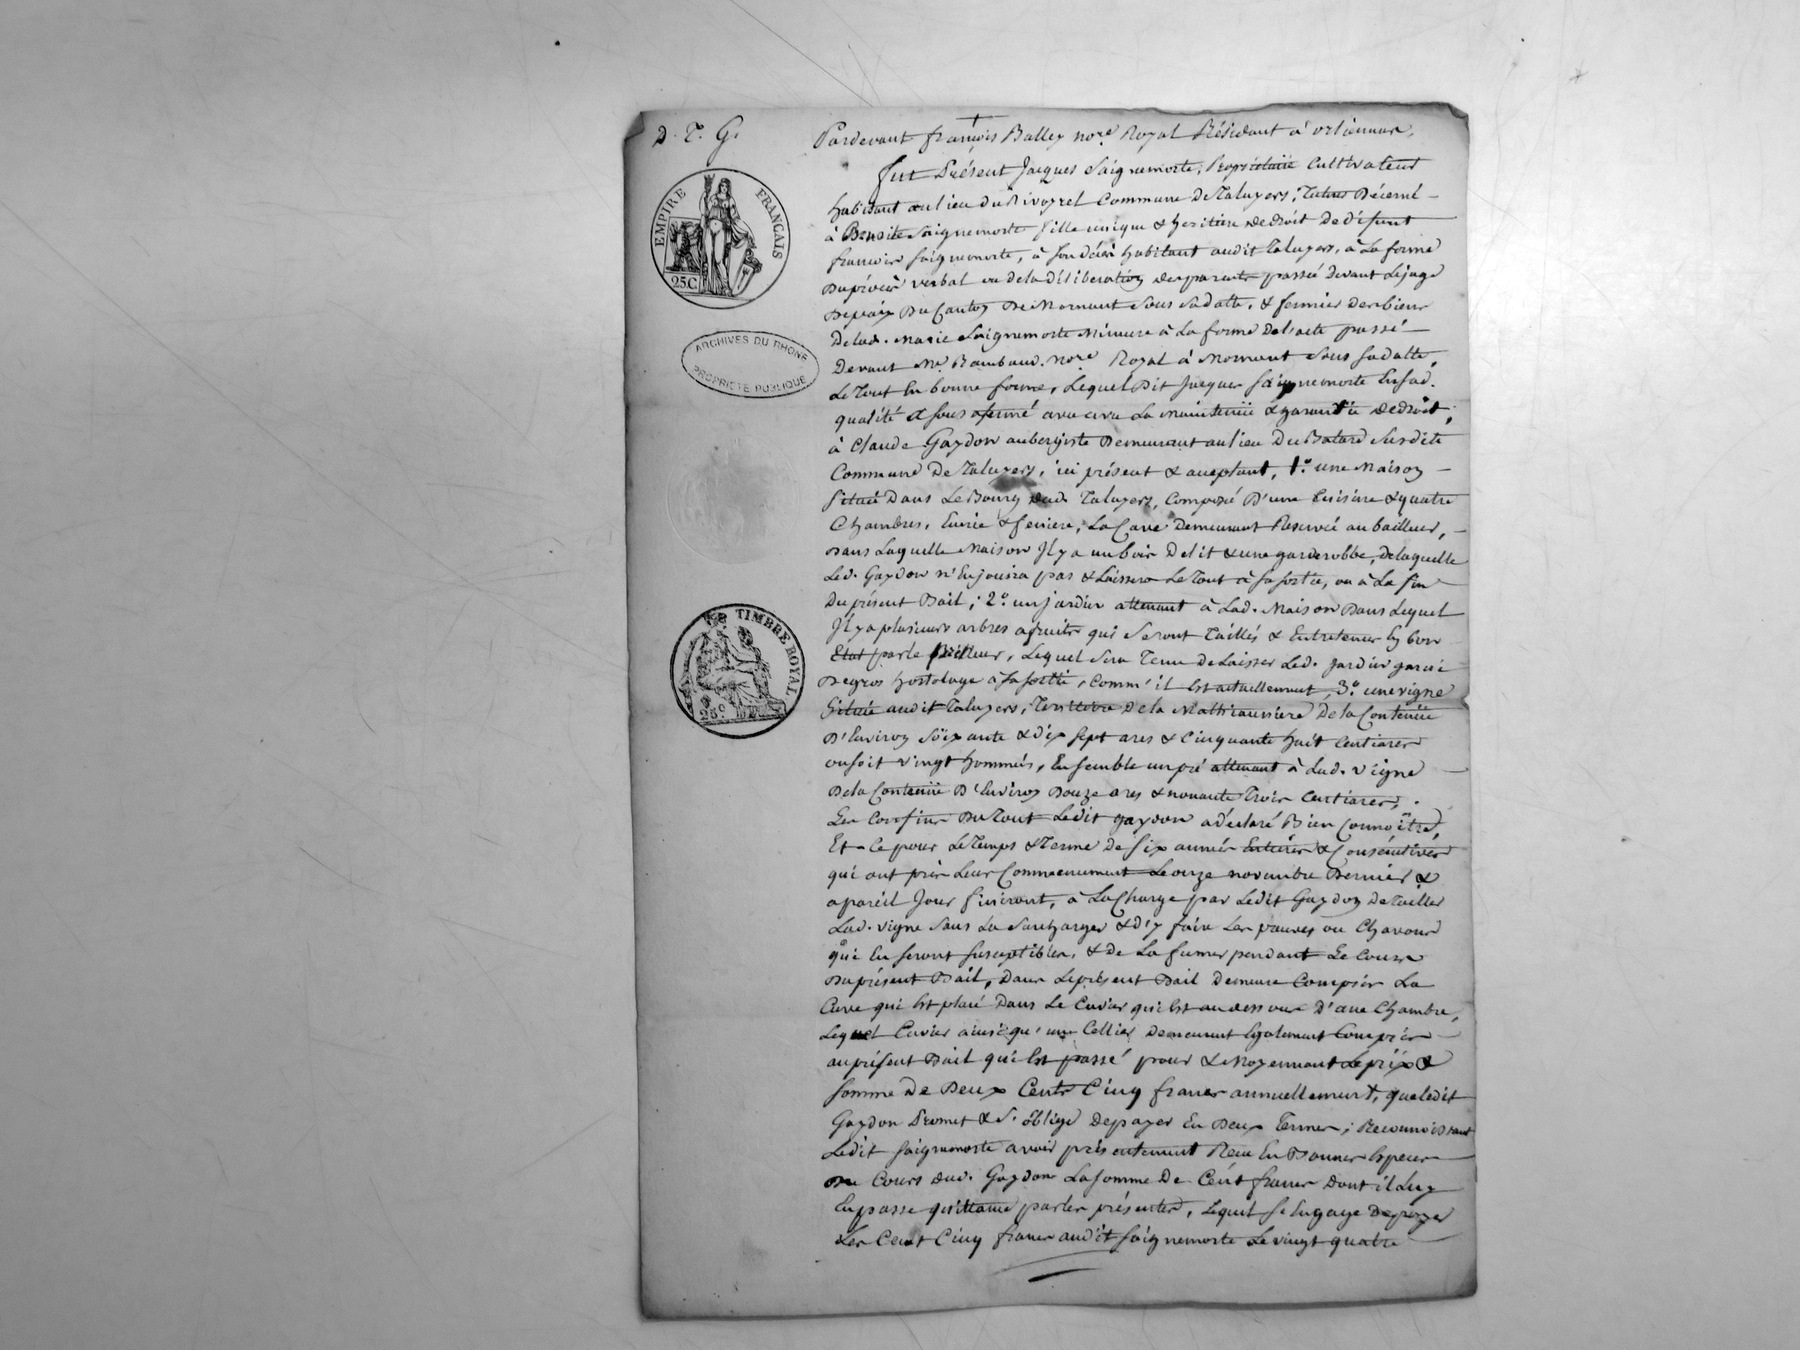 D. T. G.
Pardevant françois Balley no.re Royal Résidant à orliennas,
fut Présent Jacques Saignemorte, Propriétaire Cultivateur
habitant au lieu du Rivoyrel Commune De Taluyers, Tuteur Décerné
à Benoite Saignemorte fille unique & heritière de droit De défunt
françois Saignemorte, à son décès habitant audit Taluyers, à La forme
Du procès verbal ou de la déliberation des parents passée devant Lejuge
De paix Du Canton De Mornant Sous Sa datte, & fermier des biens
De lad. Marie Saignemorte Mineure à La forme De l'acte passé
Devant Me. Rambaud. no.re Royal à Mornant Sous Sa datte,
Le Tout En bonne forme, Lequel Dit Jacques Saignemorte En sad.
qualité a sous afermé avec la maintenüe & garantie De droit,
à Claude Gaydon aubergiste Demeurant au lieu Du Batard Susdite
Commune De Taluyers, ici présent & acceptant, 1.° une Maison
Située Dans Le Bourg dud. Taluyers, Composée D'une Cuisine & quatre
Chambres, Ecurie & feniere, La Cave Demeurant Réservée au bailleur,
Dans Laquelle Maison Il y a un bois De lit & une garderobbe, De laquelle
Led. Gaydon n'En jouira pas & Laissera Le Tout à Sa sortie, ou à La fin
Du présent Bail; 2.° un jardin attenant à Lad. Maison Dans Lequel
Il y a plusieurs arbres a fruits qui Seront Taillés & Entretenus En bon
Etat par le Bailleur, Lequel Sera Tenu De Laisser Led. Jardin garni
De gros hortolage à Sa sortie, Comm'il Est actuellement, 3.° une vigne
Située audit Taluyers, Territoire De la Mathiaussiere De la Contenüe
D'Environ Soixante & dix sept ares & Cinquante huit Centiares
ou soit vingt hommées, Ensemble un pré attenant à Lad. vigne
De la Contenüe D'Environ Douze ares & nonante Trois Centiares,
Les Confins Du Tout Ledit gaydon a déclaré Bien Connoître,
Et Ce pour Le Temps & Terme De Six années Entières & Consécutives
qui ont pris Leur Commencement Le onze novembre Dernier &
a pareil Jour finiront, à La Charge par Ledit Gaydon De Tailler
Lad. vigne Sans La Surcharger & d'y faire Les Chavons
qui En seront susceptibles, & de La fumer pendant Le Cours
Du présent Bail, Dans Le présent Bail Demeure Compris La
Cuve qui Est placé Dans Le Cuvier qui Est au dessous D'une Chambre,
Lequel Cuvier ainsi qu'un Cellier Demeurent Egalement Compris
au présent Bail qui Est passé pour & Moyennant Le prix &
Somme De Deux Cents Cinq francs annuellement, que Ledit
Gaydon Promet & S'oblige De payer En Deux Termes; Reconnoissant
Ledit Saignemorte avoir présentement Recu En Bonnes Espèces
De Cours dud. Gaydon La somme De Cent francs Dont il Luy
En passe quittance par les présentes, Lequel S'Engage De payer
Les Cent Cinq francs audit Saignemorte Le vingt quatre
EMPIRE FRANÇAIS
25C
ARCHIVES DU RHÔNE
PROPRIÉTÉ PUBLIQUE
TIMBRE ROYAL
25c